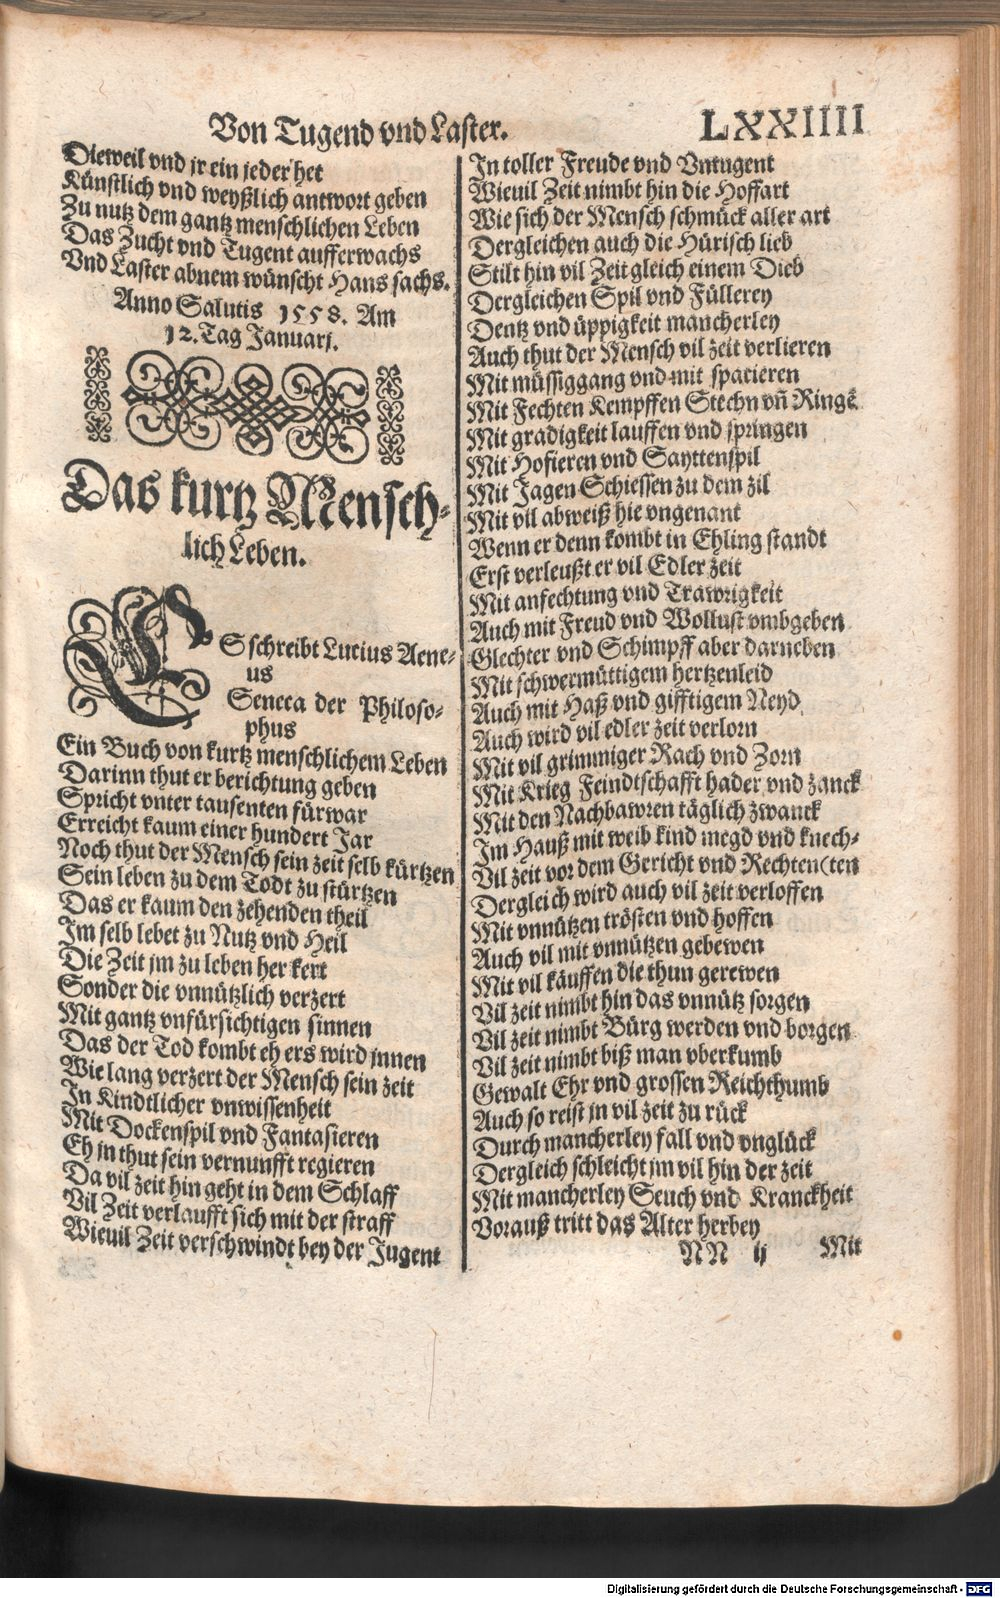 Von Tugend vnd Laster.
LXXIIII
Dieweil vnd jr ein jeder het
Künstlich vnd weyßlich antwort geben
Zu nutz dem gantz menschlichen Leben
Das Zucht vnd Tugent aufferwachs
Vnd Laster abnem wünscht Hans sachs.
Anno Salutis 1558. Am
12. Tag Januarj.
Das kurtz Mensch-
lich Leben.
ES schreibt Lucius Aene-
us
Seneca der Philoso-
phus
Ein Buch von kurtz menschlichem Leben
Darinn thut er berichtung geben
Spricht vnter tausenten fürwar
Erreicht kaum einer hundert Jar
Noch thut der Mensch sein zeit selb kürtzen
Sein leben zu dem Todt zu stürtzen
Das er kaum den zehenden theil
Im selb lebet zu Nutz vnd Heil
Die Zeit jm zu leben her kert
Sonder die vnnützlich verzert
Mit gantz vnfürsichtigen sinnen
Das der Tod kombt eh ers wird jnnen
Wie lang verzert der Mensch sein zeit
In Kindtlicher vnwissenheit
Mit Dockenspil vnd Fantasieren
Eh jn thut sein vernunfft regieren
Da vil zeit hin geht in dem Schlaff
Vil Zeit verlaufft sich mit der straff
Wieuil Zeit verschwindt bey der Jugent
In toller Freude vnd Vntugent
Wieuil Zeit nimbt hin die Hoffart
Wie sich der Mensch schmück aller art
Dergleichen auch die Hürisch lieb
Stilt hin vil Zeit gleich einem Dieb
Dergleichen Spil vnd Füllerey
Dentz vnd üppigkeit mancherley
Auch thut der Mensch vil zeit verlieren
Mit müssiggang vnd mit spacieren
Mit Fechten Kempffen Stechn vñ Ringẽ
Mit gradigkeit lauffen vnd springen
Mit Hofieren vnd Sayttenspil
Mit Jagen Schiessen zu dem zil
Mit vil abweiß hie vngenant
Wenn er denn kombt in Ehling standt
Erst verleußt er vil Edler zeit
Mit anfechtung vnd Trawrigkeit
Auch mit Freud vnd Wollust vmbgeben
Glechter vnd Schimpff aber darneben
Mit schwermüttigem hertzenleid
Auch mit Haß vnd gifftigem Neyd
Auch wird vil edler zeit verlorn
Mit vil grimmiger Rach vnd Zorn
Mit Krieg Feindtschafft hader vnd zanck
Mit den Nachbawren täglich zwanck
Im Hauß mit weib kind megd vnd knech-
Vil zeit vor dem Gericht vnd Rechten (ten
Dergleich wird auch vil zeit verloffen
Mit vnnützen trösten vnd hoffen
Auch vil mit vnnützen gebewen
Mit vil käuffen die thun gerewen
Vil zeit nimbt hin das vnnütz sorgen
Vil zeit nimbt Bürg werden vnd borgen
Vil zeit nimbt biß man vberkumb
Gewalt Ehr vnd grossen Reichthumb
Auch so reist jn vil zeit zu rück
Durch mancherley fall vnd vnglück
Dergleich schleicht jm vil hin der zeit
Mit mancherley Seuch vnd Kranckheit
Vorauß tritt das Alter herbey
NN ij Mit
Digitalisierung gefördert durch die Deutsche Forschungsgemeinschaft - DFG